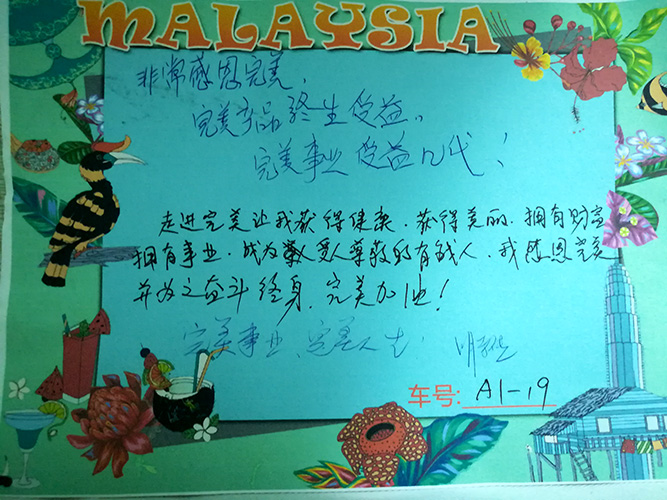 MALAYSIA
非常感恩完美,
完美产品终生受益。
完美事业受益几代!
走进完美让我获得健康、获得美丽、拥有财富
拥有事业、成为受人尊敬的有钱人、我感恩完美
并为之奋斗终身,完美加油!
完美事业、完美人生!
车号: A1-19